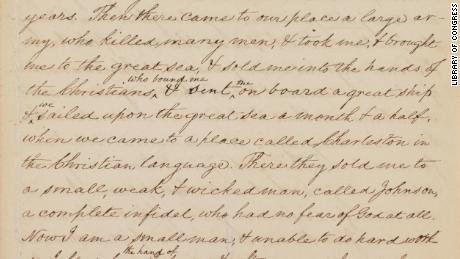 years. Then there came to our place a large ar-
my, who killed many men, & took me, & brought
me to the great sea, & sold me into the hands of
the Christians, who bound me & sent me on board a great ship
& we sailed upon the great sea a month & a half,
when we came to a place called Charleston in
the Christian language. There they sold me to
a small, weak, & wicked man, called Johnson,
a complete infidel, who had no fear of God at all.
Now I am a small man, & unable to do hard work
the hand of
LIBRARY OF CONGRESS